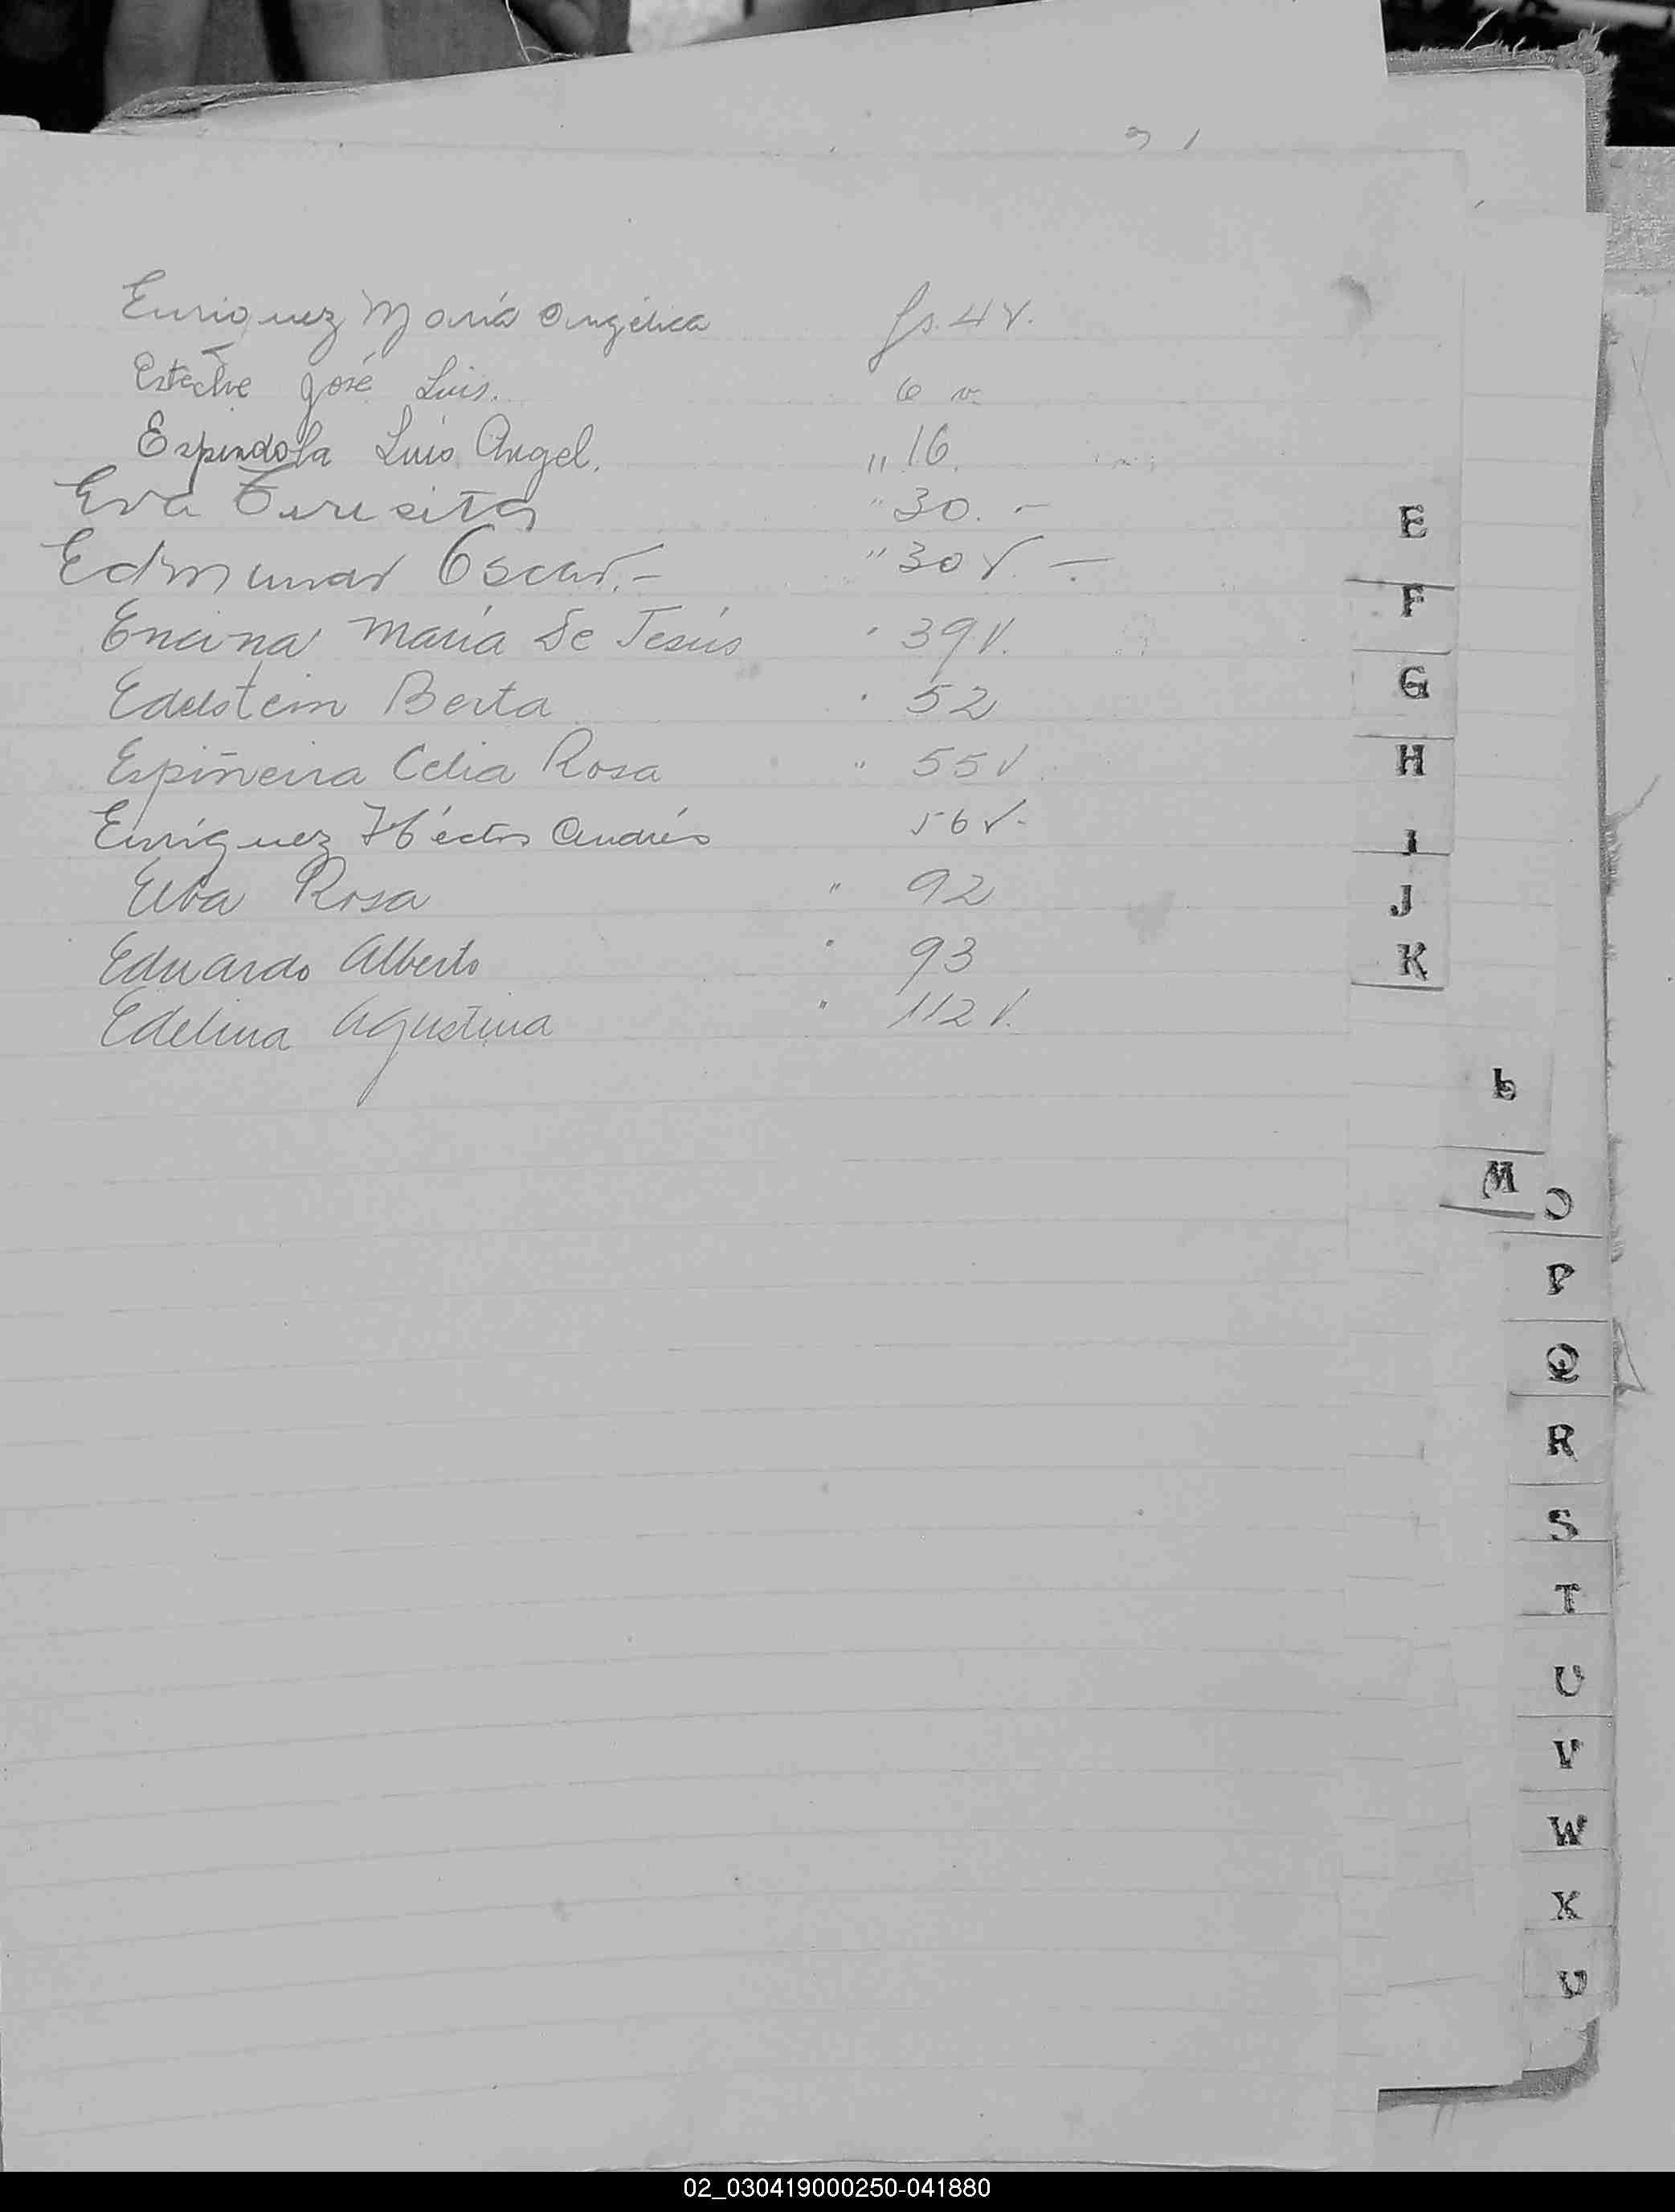 Enriquez María Angélica fs. 4 v.
Esteche José Luis. 6 v.
Espindola Luis Angel. " 16.
Eva Teresita " 30. -
Edmundo Oscar. - " 30 v. -
Encina María De Jesús " 39 v.
Edelstein Berta " 52
Espiñeira Celia Rosa " 55 v.
Enriquez Héctor Andrés 56 v. -
Elba Rosa " 92
Eduardo Alberto " 93
Edelina Agustina " 112 v.
E
F
G
H
I
J
K
L
M
O
P
Q
R
S
T
U
V
W
X
02_030419000250-041880